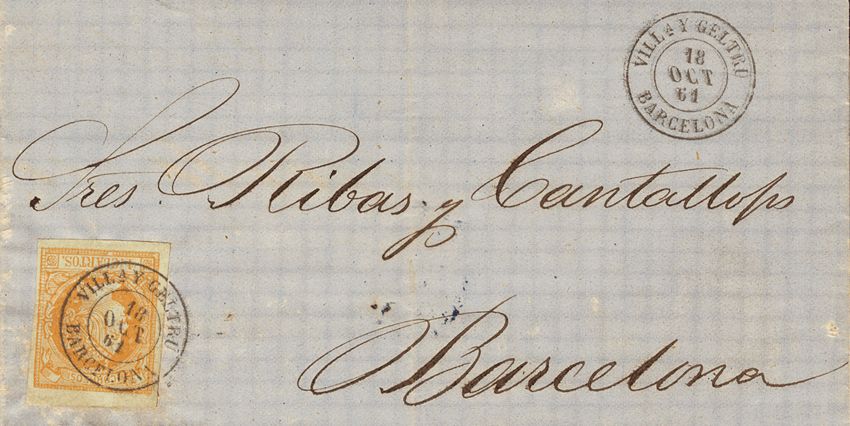 VILLA Y GELTRU
18
OCT
61
BARCELONA
Sres. Ribas y Cantallops
Barcelona
CUARTOS
VILLA Y GELTRU
18
OCT
61
BARCELONA